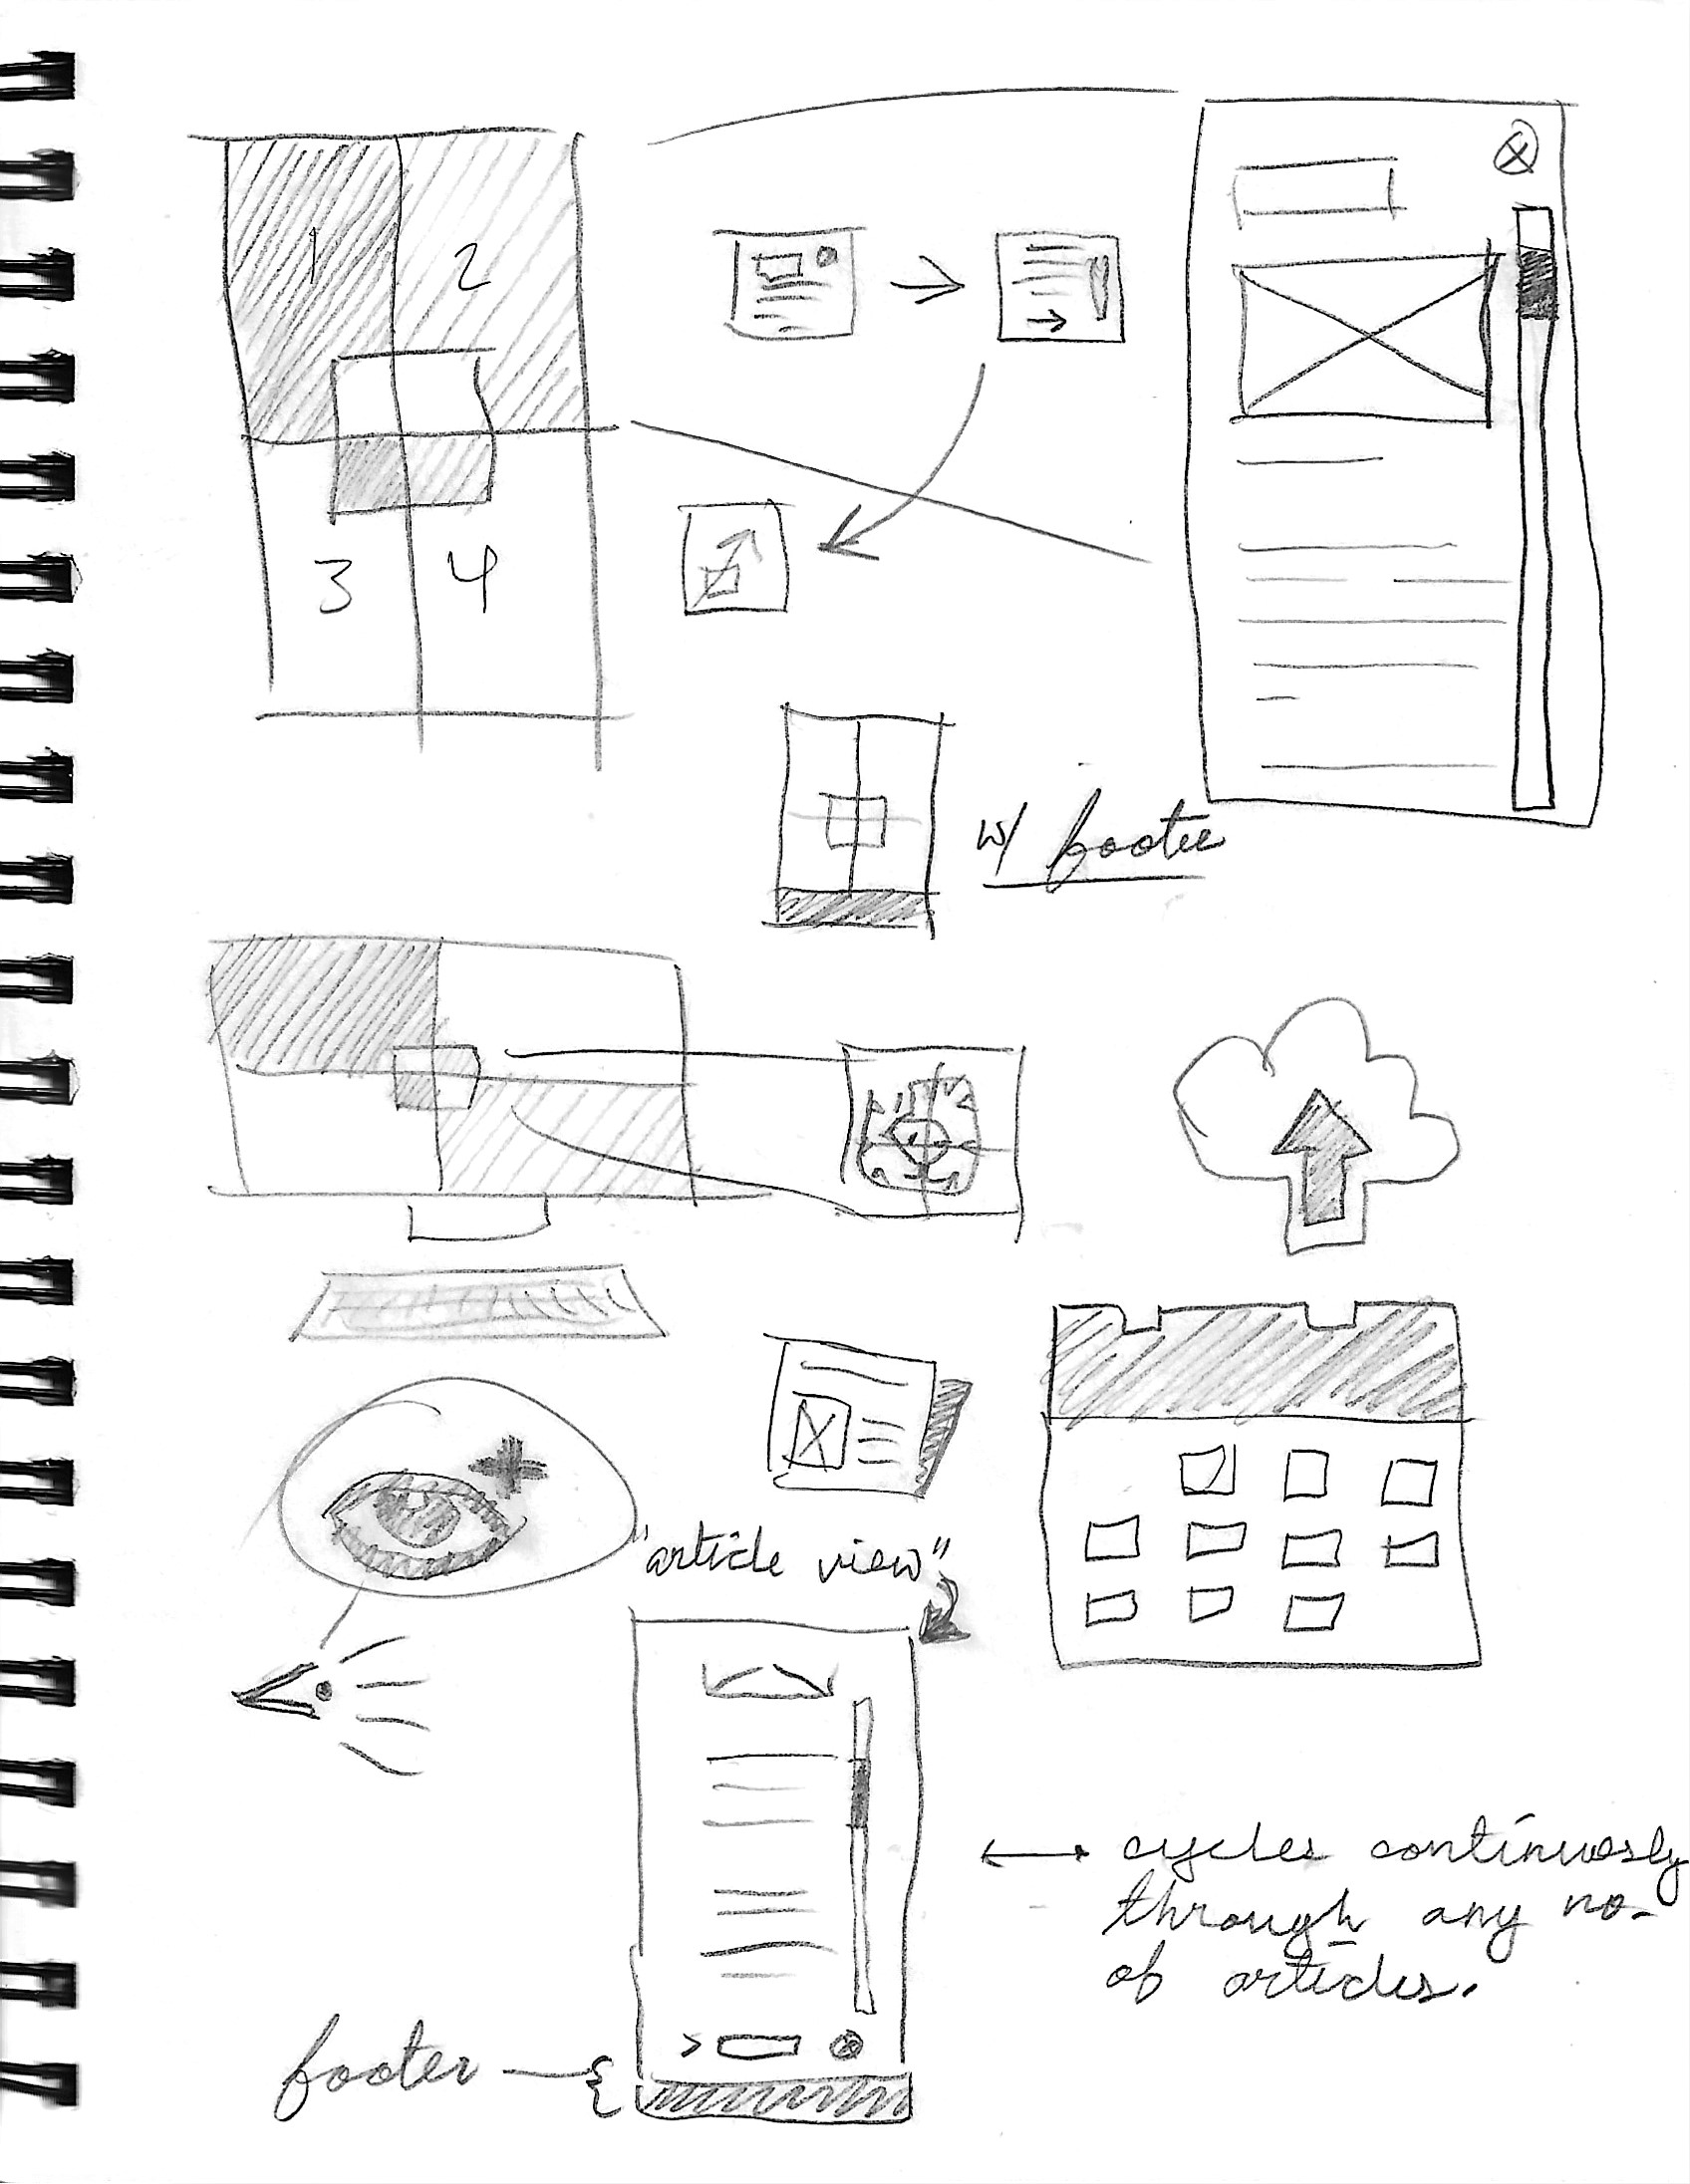 1 2
3 4
w/ footer
"article view"
cycles continuosly
through any no.
of articles.
footer